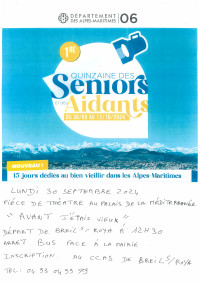 DÉPARTEMENT
DES ALPES-MARITIMES
06
1re
QUINZAINE DES
Seniors
et des
Aidants
DU 30/09 AU 11/10/2024
NOUVEAU !
15 jours dédiés au bien vieillir dans les Alpes-Maritimes
LUNDI 30 SEPTEMBRE 2024
PIÈCE DE THÉATRE AU PALAIS DE LA MÉDITERRANÉE
"AVANT J'ÉTAIS VIEUX"
DÉPART DE BREIL S/ ROYA À 12H30
ARRET BUS FACE À LA MAIRIE
INSCRIPTION. AU CCAS DE BREIL S/ROYA
TEL: 04 93 04 99 99